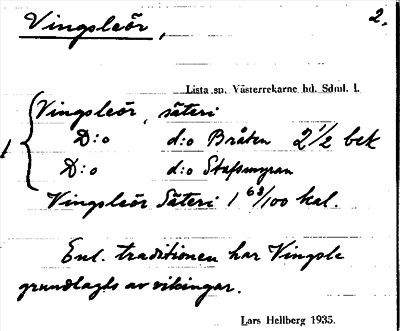 Vingsleör, 2.
Lista sn. Västerrekarne hd. Sdml. l.
1 { Vingsleör, säteri
D:o d:o Bråten 2 1/2 bek
D:o d:o Stafsmyran
Vingsleör Säteri 1 63/100 kal.
Enl. traditionen har Vingsle
grundlagts av vikingar.
Lars Hellberg 1935.